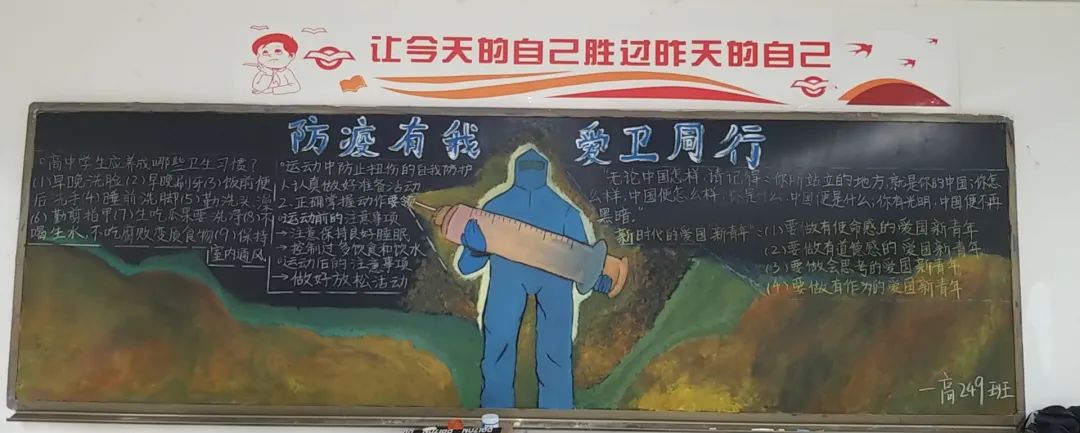 让今天的自己胜过昨天的自己
防疫有我 爱卫同行
高中学生应养成哪些卫生习惯?
(1)早晚洗脸(2)早晚刷牙(3)饭前便
后洗手(4)睡前洗脚(5)勤洗头澡
(6)勤剪指甲(7)生吃瓜果要洗净(8)不
喝生水,不吃腐败变质食物(9)保持
室内通风
运动中防止扭伤的自我防护
1.认真做好准备活动
2.正确掌握动作要领
运动前的注意事项
→注意保持良好睡眠
→控制过多饮食和饮水
运动后的注意事项
→做好放松活动
"无论中国怎样,请记得:你所站立的地方,就是你的中国;你怎
么样,中国便怎么样;你是什么,中国便是什么;你有光明,中国便不再
黑暗。
"新时代的爱国新青年":(1)要做有使命感的爱国新青年
(2)要做有道德感的爱国新青年
(3)要做会思考的爱国新青年
(4)要做有作为的爱国新青年
一高249班